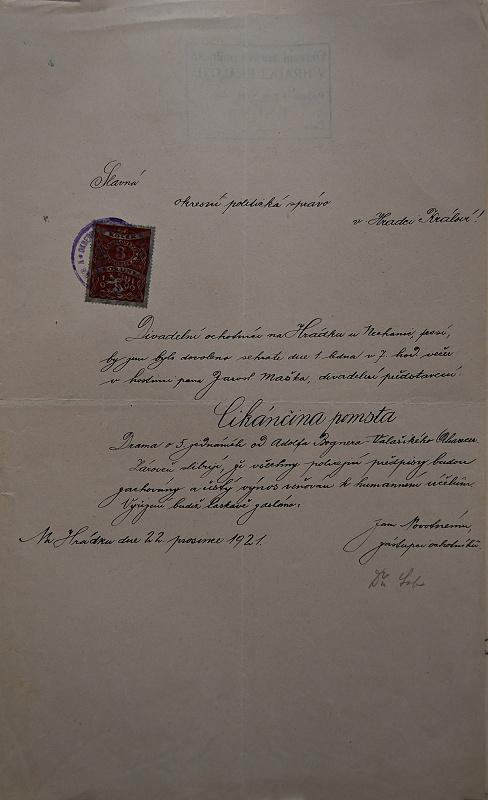 Slavná
okresní politická správo
v Hradci Králové!
KOLEK
3
KORUNY
Divadelní ochotníci na Hrádku u Nechanic, prosí,
by jim bylo dovoleno sehrati dne 1 ledna v 7. hod. večer
v hostinci pana Jarosl Maška, divadelní představení:
Cikánčina pomsta
Drama o 5 jednáních od Adolfa Bognera-Valašského
Zároveň slibují, že všechny policejní předpisy budou
zachovány a čistý výnos věnován k humanním účelům.
Vyřízení budiž laskavě zasláno:
Jan Novotnému,
zástupce ochotníků
Na Hrádku dne 22 prosince 1921.